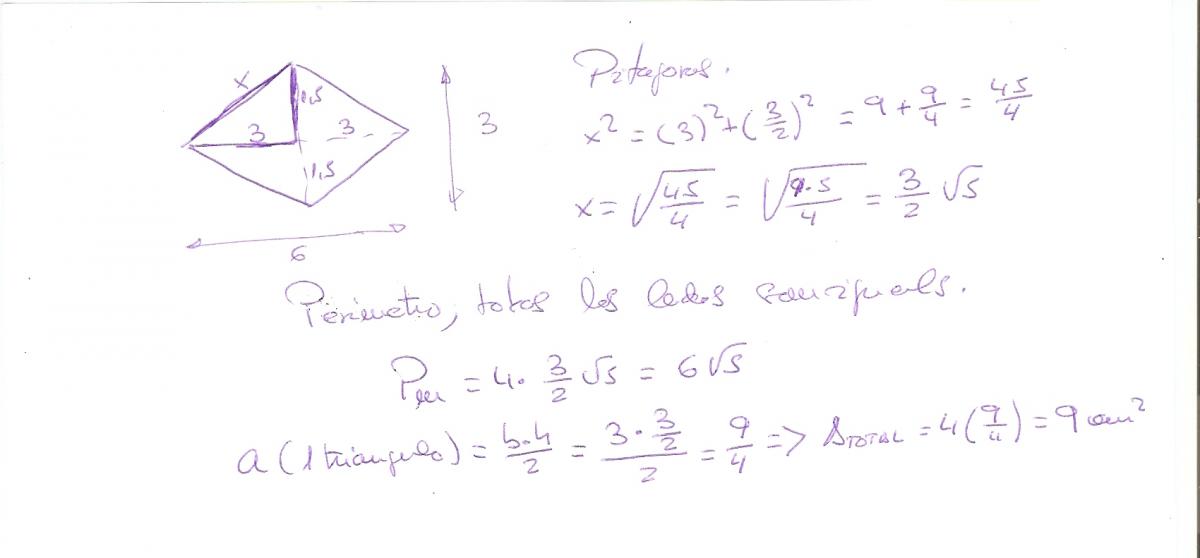 x
1,5
3
3
1,5
3
6
Pitagoras.
x² = (3)² + (3/2)² = 9 + 9/4 = 45/4
x = √(45/4) = √(9·5/4) = 3/2 √5
Perimetro, todos los lados son iguals.
Per = 4 · 3/2 √5 = 6√5
a (1 triángulo) = b·h/2 = (3 · 3/2)/2 = 9/4 => A TOTAL = 4(9/4) = 9 cm²